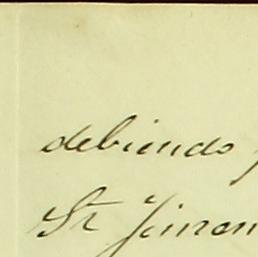 debiendo
Sr Jimen